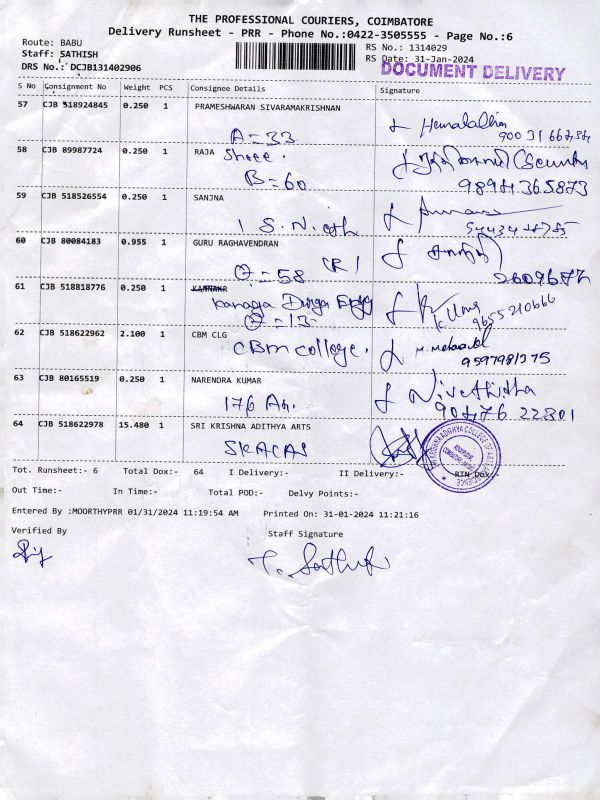 THE PROFESSIONAL COURIERS, COIMBATORE
Delivery Runsheet - PRR - Phone No.:0422-3505555 - Page No.:6
Route: BABU
Staff: SATHISH
DRS No.: DCJB131402906
RS No.: 1314029
RS Date: 31-Jan-2024
DOCUMENT DELIVERY
S No Consignment No Weight PCS Consignee Details Signature
57 CJB 518924845 0.250 1 PRAMESHWARAN SIVARAMAKRISHNAN
A = 33
58 CJB 89987724 0.250 1 RAJA Shree.
B = 60
9894365873
59 CJB 518526554 0.250 1 SANJNA
1 S. N.
60 CJB 80084183 0.955 1 GURU RAGHAVENDRAN
= 58
61 CJB 518818776 0.250 1 KANNAKR
Kanaga Durga
= 13
K. Uma
9655210666
62 CJB 518622962 2.100 1 CBM CLG
CBM College.
9597981375
63 CJB 80165519 0.250 1 NARENDRA KUMAR
176 An.
Nivethitha
90476 22801
64 CJB 518622978 15.480 1 SRI KRISHNA ADITHYA ARTS
SKACAS
Tot. Runsheet:- 6 Total Dox:- 64 I Delivery:- II Delivery:- RTN Dox:-
Out Time:- In Time:- Total POD:- Delvy Points:-
Entered By :MOORTHYPRR 01/31/2024 11:19:54 AM Printed On: 31-01-2024 11:21:16
Verified By Staff Signature